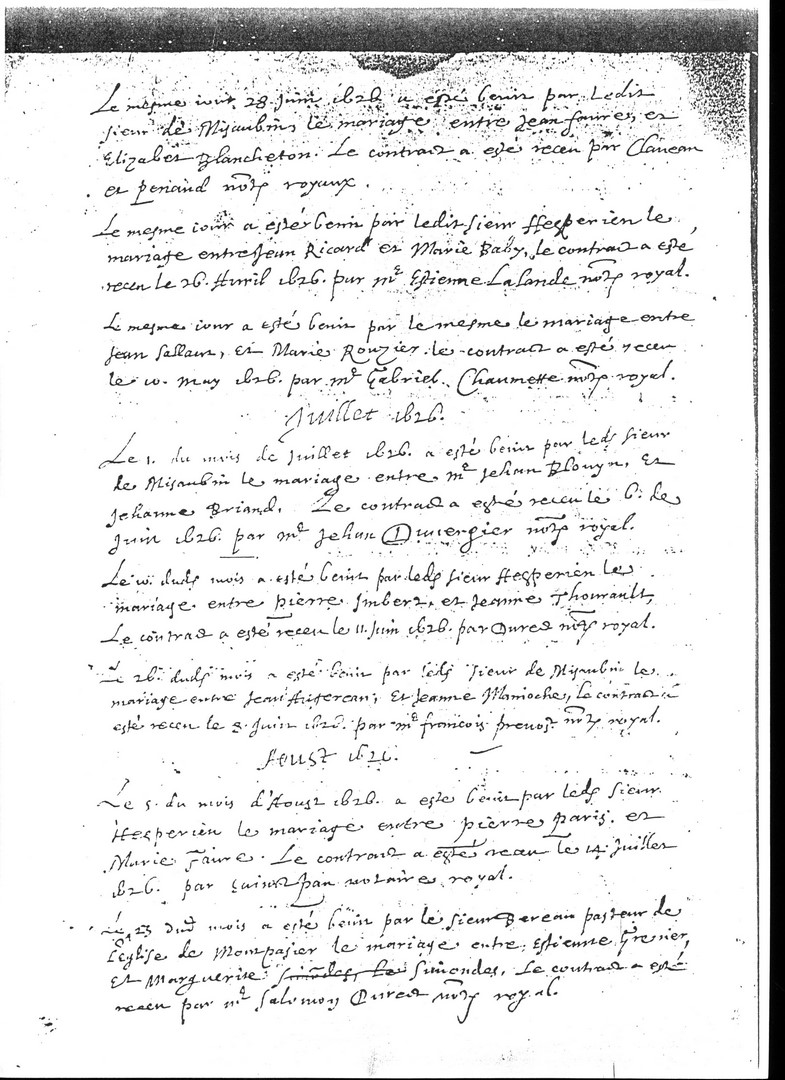 Le mesme iour 28 Juin 1626 a esté benit par Ledit
sieur de Misaubin, le mariage entre Jean faure, et
Elizabet Blancheton. Le contract a esté receu par Claueau
et periand nõt̃ royaux.
Le mesme iour a esté benit par ledit sieur Hesperien le
mariage entre Jean Ricard et Marie Baby, le contract a esté
receu le 26. Auril 1626. par mᵉ Estienne Lalande nõt̃ royal.
Le mesme iour a esté benit par le mesme le mariage entre
Jean Sallaur, et Marie Rouzier le contract a esté receu
le 10. may 1626. par mᵉ Gabriel Chaumette nõt̃ royal.
Juillet 1626.
Le 5. du mois de Juillet 1626. a esté benit par leds sieur
de Misaubin le mariage entre mᵉ Jehan Blouyn, Et
Jehanne Briand. Le contract a esté receu le 6. de
Juin 1626. par mᵉ Jehan Duuergier nõt̃ royal.
Le 10. duds mois a esté benit par leds sieur Hesperien le
mariage entre pierre Imbert, et Jeanne Thourault,
Le contract a esté receu le 11. Juin 1626. par Duret nõt̃ royal.
Le 26. duds mois a esté benit par leds sieur de Misaubin le
mariage entre Jean Augereau, Et Jeanne Manioche, le contract a
esté receu le 8. Juin 1626. par mᵉ francois preuost nõt̃ royal.
Aoust 1626.
Le 5. du mois d'Aoust 1626. a esté benit par leds sieur
Hesperien le mariage entre pierre paris. et
Marie Faure. Le contract a esté receu le 14. Juillet
1626. par notaire royal.
Le 23 dud mois a esté benit par le sieur Bereau pasteur de
l'Eglise de Montpasier le mariage entre Estienne Grenier,
Et Marguerite Simondes, Le Simondes, Le contract a esté
receu par mᵉ Salomon Duret nõt̃ royal.